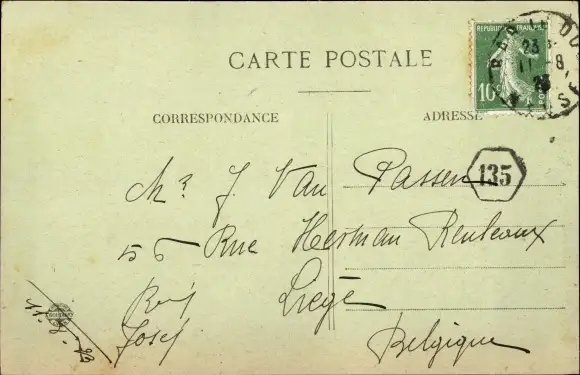 CARTE POSTALE
REPUBLIQUE FRANÇAISE
10c
23
11-8
CORRESPONDANCE
ADRESSE
135
Mr J Van Passen
56 Rue Herman Reuleaux
Liège
Josef
Belgique